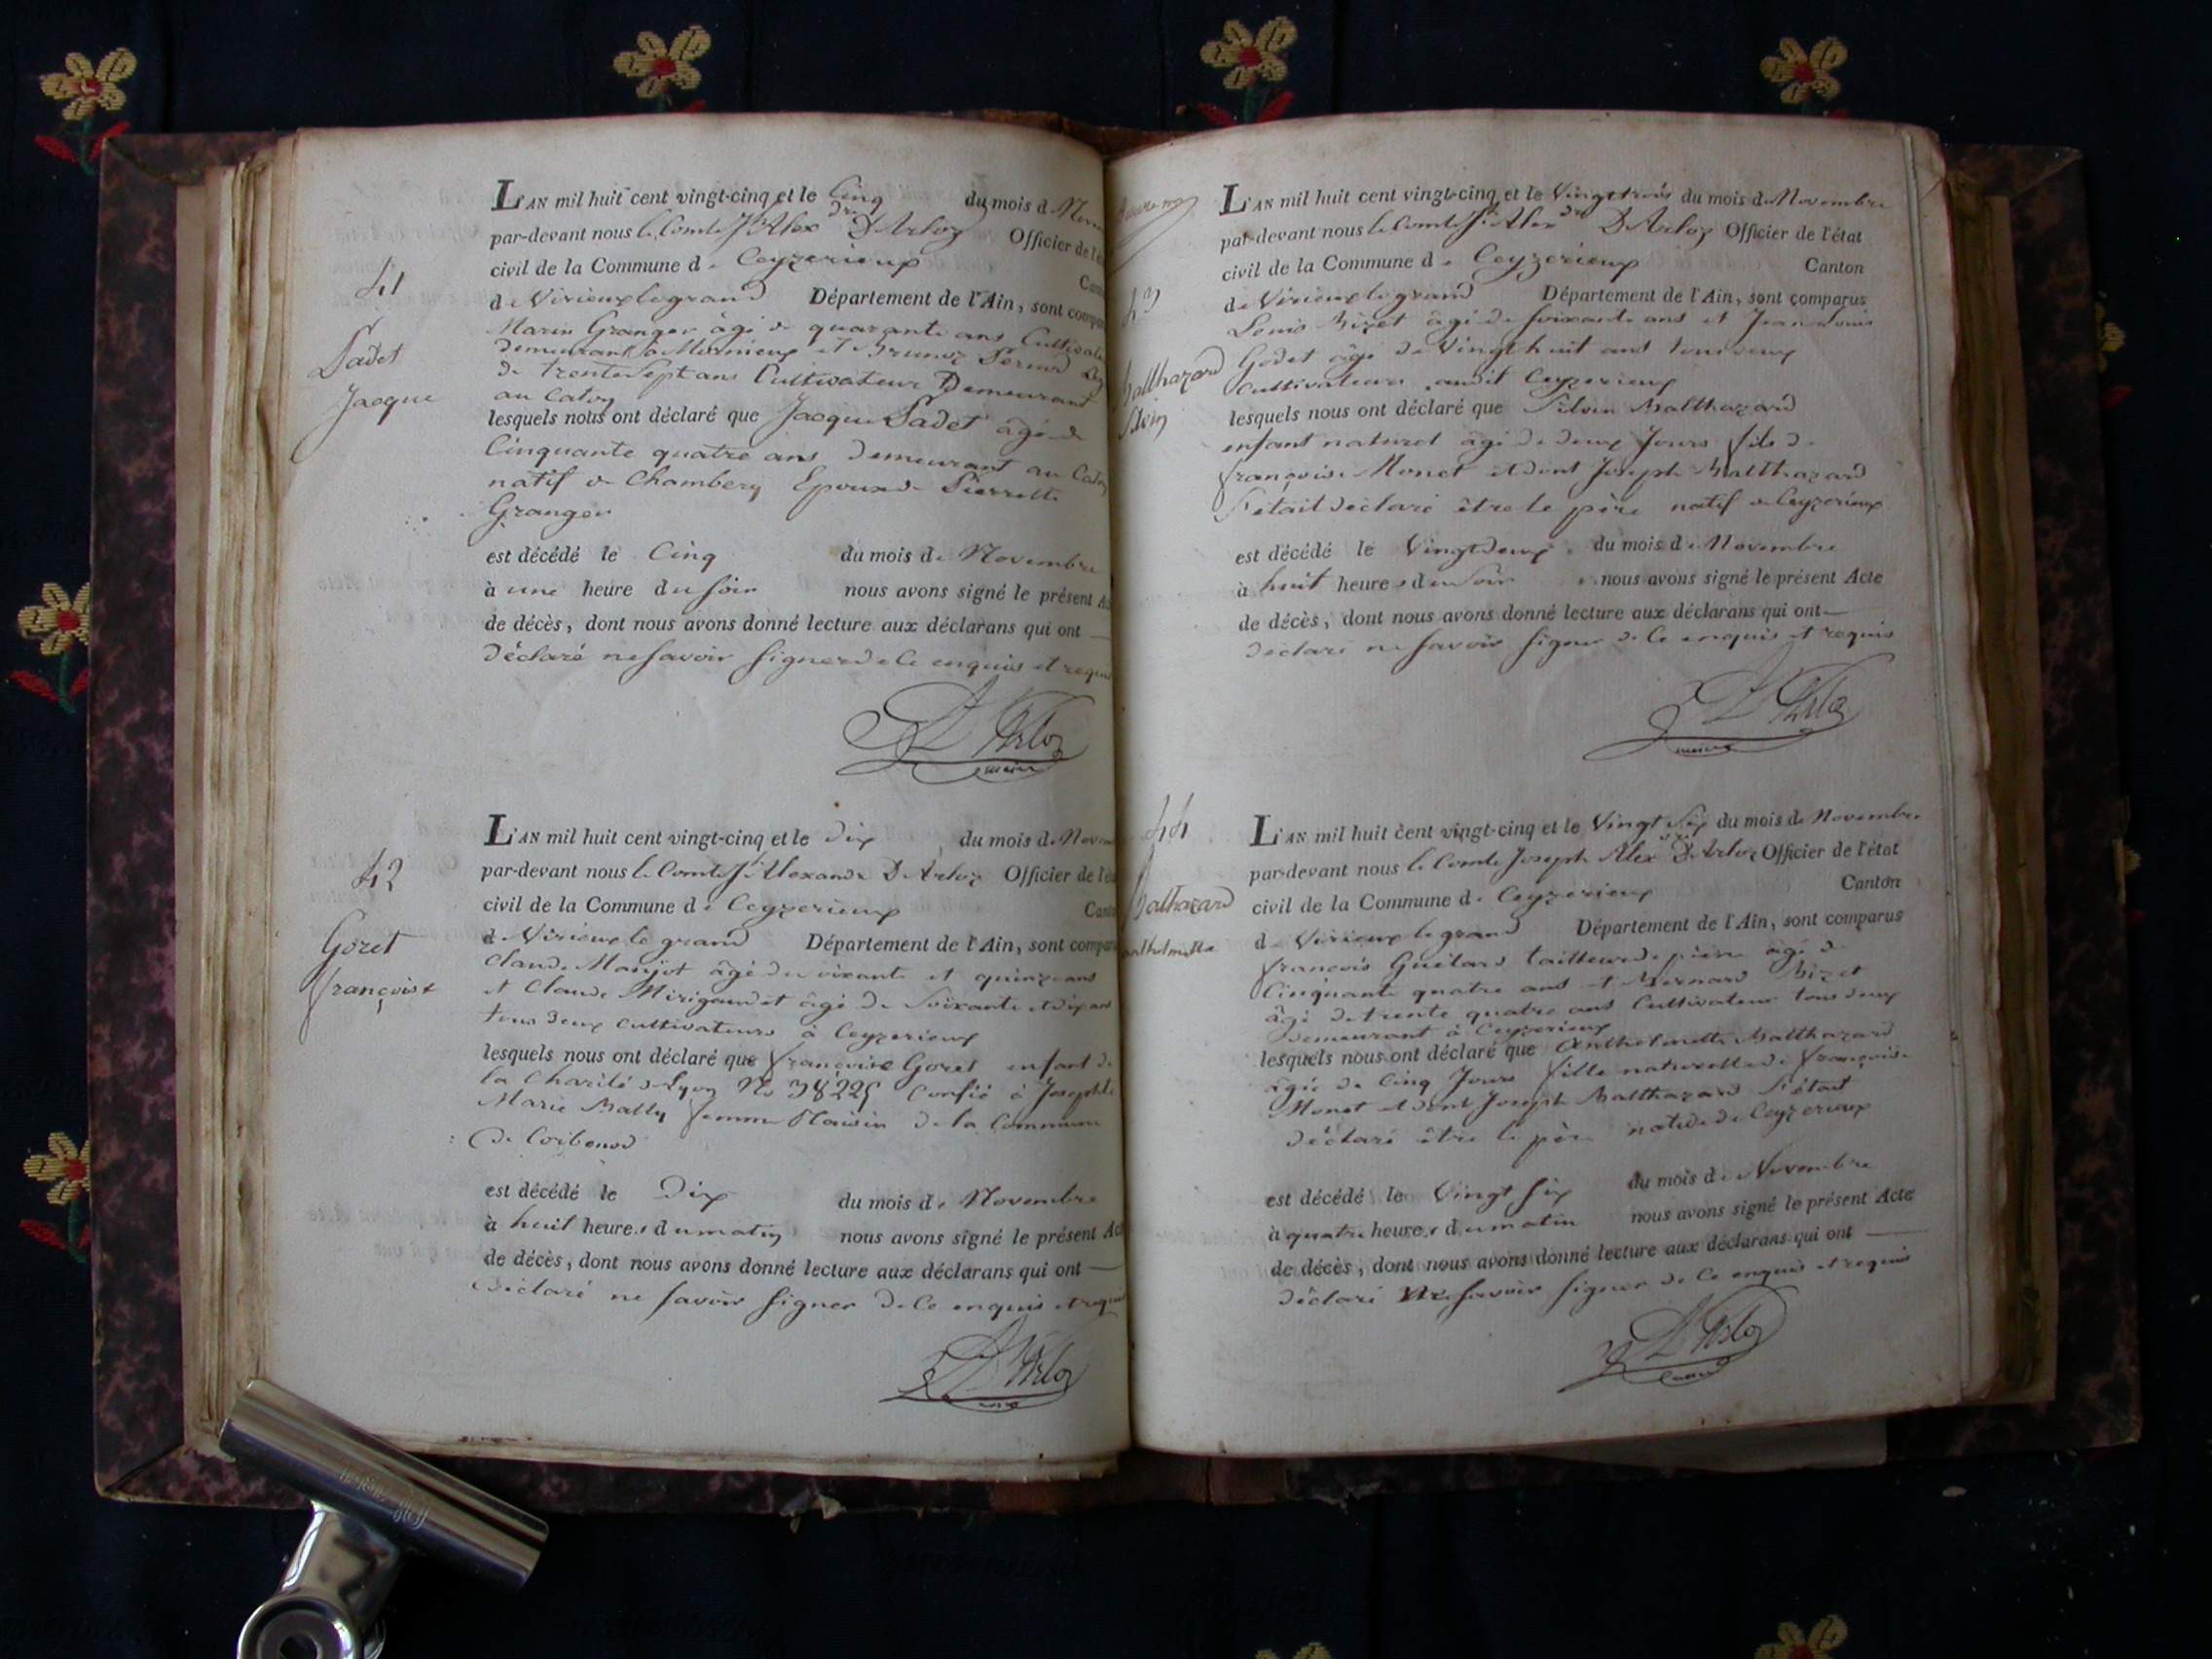 41
Sadet
Jacque
L'AN mil huit cent vingt-cinq et le Cinq du mois d. Nov
par-devant nous le Comte Jh Alexdre D'Arloz Officier de l'é
civil de la Commune d. Ceyzerieux
Cant
d. Virieux le grand Département de l'Ain, sont compa
Marin Granger âgé de quarante ans Cultivat
demeurant à
de trente sept ans Cultivateur Demeurant
au Caton
lesquels nous ont déclaré que Jacque Sadet âgé de
Cinquante quatre ans demeurant au Caton
natif de Chambery Epoux de Pierrette
Granger
est décédé le Cinq du mois d. Novembre
à une heure du soir nous avons signé le présent A
de décès, dont nous avons donné lecture aux déclarans qui ont
Déclaré ne savoir signer de Ce enquis et requis
D'Arloz
maire
42
Goret
françoise
L'AN mil huit cent vingt-cinq et le dix du mois d. Novem
par-devant nous le Comte Jh Alexandre D'Arloz Officier de l'ét
civil de la Commune d. Ceyzerieux
Cant
d. Virieux le grand Département de l'Ain, sont compar
Claude âgé de soixante et quinze ans
et Claude âgé de Soixante et dix ans
tous deux cultivateurs à Ceyzerieux
lesquels nous ont déclaré que françoise Goret enfant de
la Charité de Lyon No 38225 Confié à Josephte
Marie Bally femme de la Commune
de Corbonod
est décédé le Dix du mois d. Novembre
à huit heures du matin nous avons signé le présent Act
de décès, dont nous avons donné lecture aux déclarans qui ont
Déclaré ne savoir signer de Ce enquis et requis
D'Arloz
43
Balthazard
Silvin
L'AN mil huit cent vingt-cinq et le Vingt trois du mois de Novembre
par-devant nous le Comte Jh Alexdre D'Arloz Officier de l'état
civil de la Commune d. Ceyzerieux Canton
d. Virieux le grand Département de l'Ain, sont comparus
Louis Bizet âgé de soixante ans et Jean Louis
Godet âgé de Vingt huit ans tous deux
Cultivateurs audit Ceyzerieux
lesquels nous ont déclaré que Silvin Balthazard
enfant naturel âgé de deux Jours fils de
françoise Monet et dont Joseph Balthazard
S'était déclaré être le père natif de Ceyzerieux
est décédé le Vingt deux du mois d. Novembre
à huit heures du Soir nous avons signé le présent Acte
de décès, dont nous avons donné lecture aux déclarans qui ont
déclaré ne savoir signer de Ce enquis et requis
D'Arloz
maire
44
Balthazard
anthelmette
L'AN mil huit cent vingt-cinq et le Vingt Six du mois d. Novembre
par-devant nous le Comte Joseph Alexdre D'Arloz Officier de l'état
civil de la Commune d. Ceyzerieux Canton
d. Virieux le grand Département de l'Ain, sont comparus
françois tailleur de pierre âgé de
Cinquante quatre ans et Bernard Bizet
âgé de trente quatre ans Cultivateur tous deux
demeurant à Ceyzerieux
lesquels nous ont déclaré que Anthelmette Balthazard
âgée de Cinq Jours fille naturelle de françoise
Monet et dont Joseph Balthazard S'était
déclaré être le père native de Ceyzerieux
est décédé le Vingt six du mois d. Novembre
à quatre heures du matin nous avons signé le présent Acte
de décès, dont nous avons donné lecture aux déclarans qui ont
déclaré ne savoir signer de Ce enquis et requis
D'Arloz